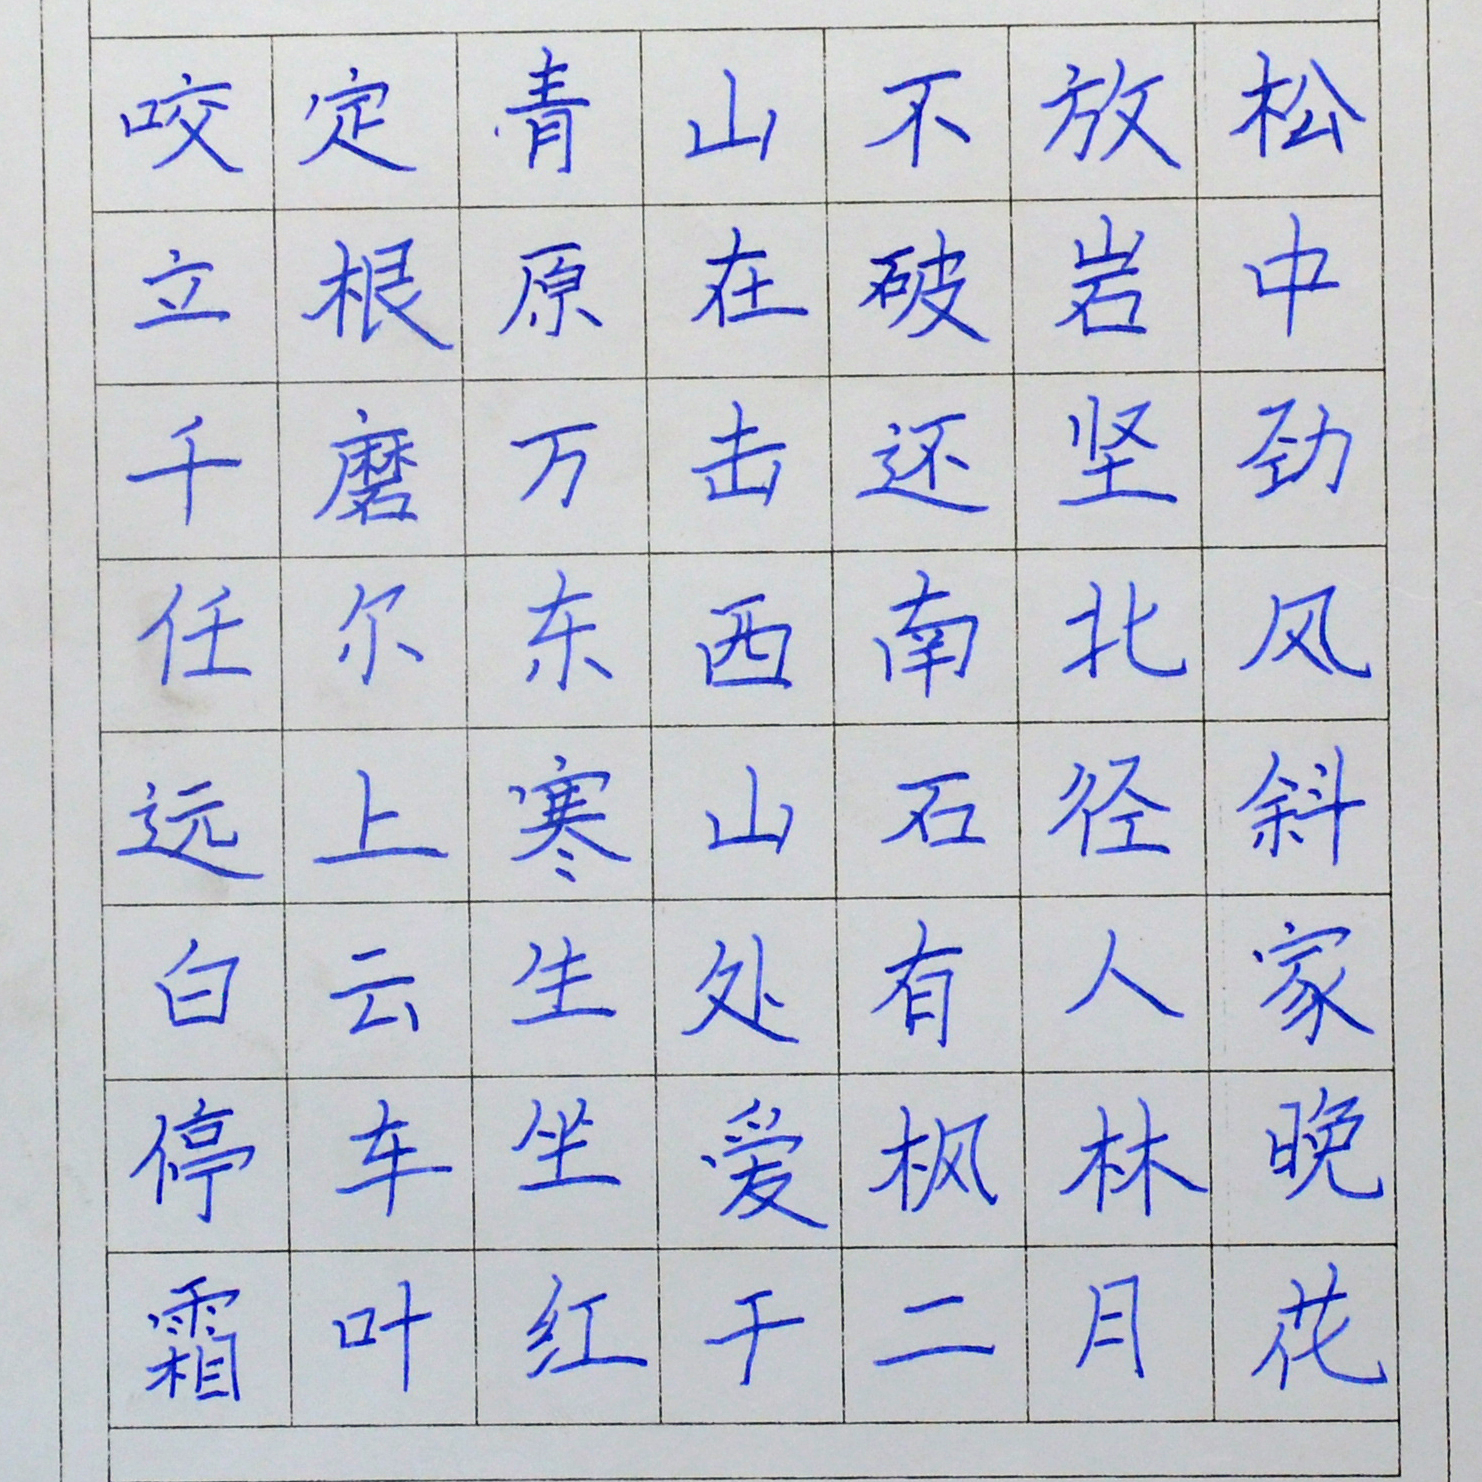 咬定青山不放松
立根原在破岩中
千磨万击还坚劲
任尔东西南北风
远上寒山石径斜
白云生处有人家
停车坐爱枫林晚
霜叶红于二月花